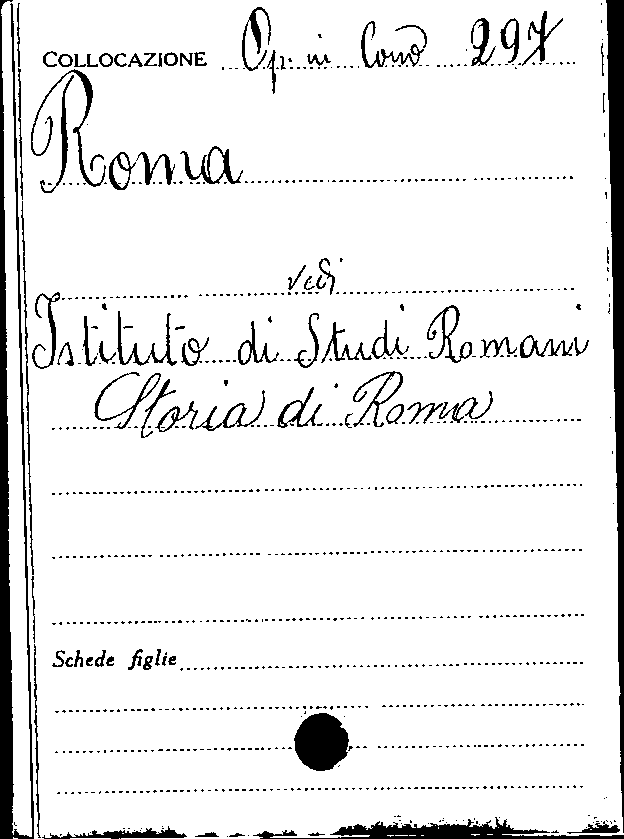 COLLOCAZIONE Op. in Cons 297
Roma
vedi
Istituto di Studi Romani
Storia di Roma
Schede figlie